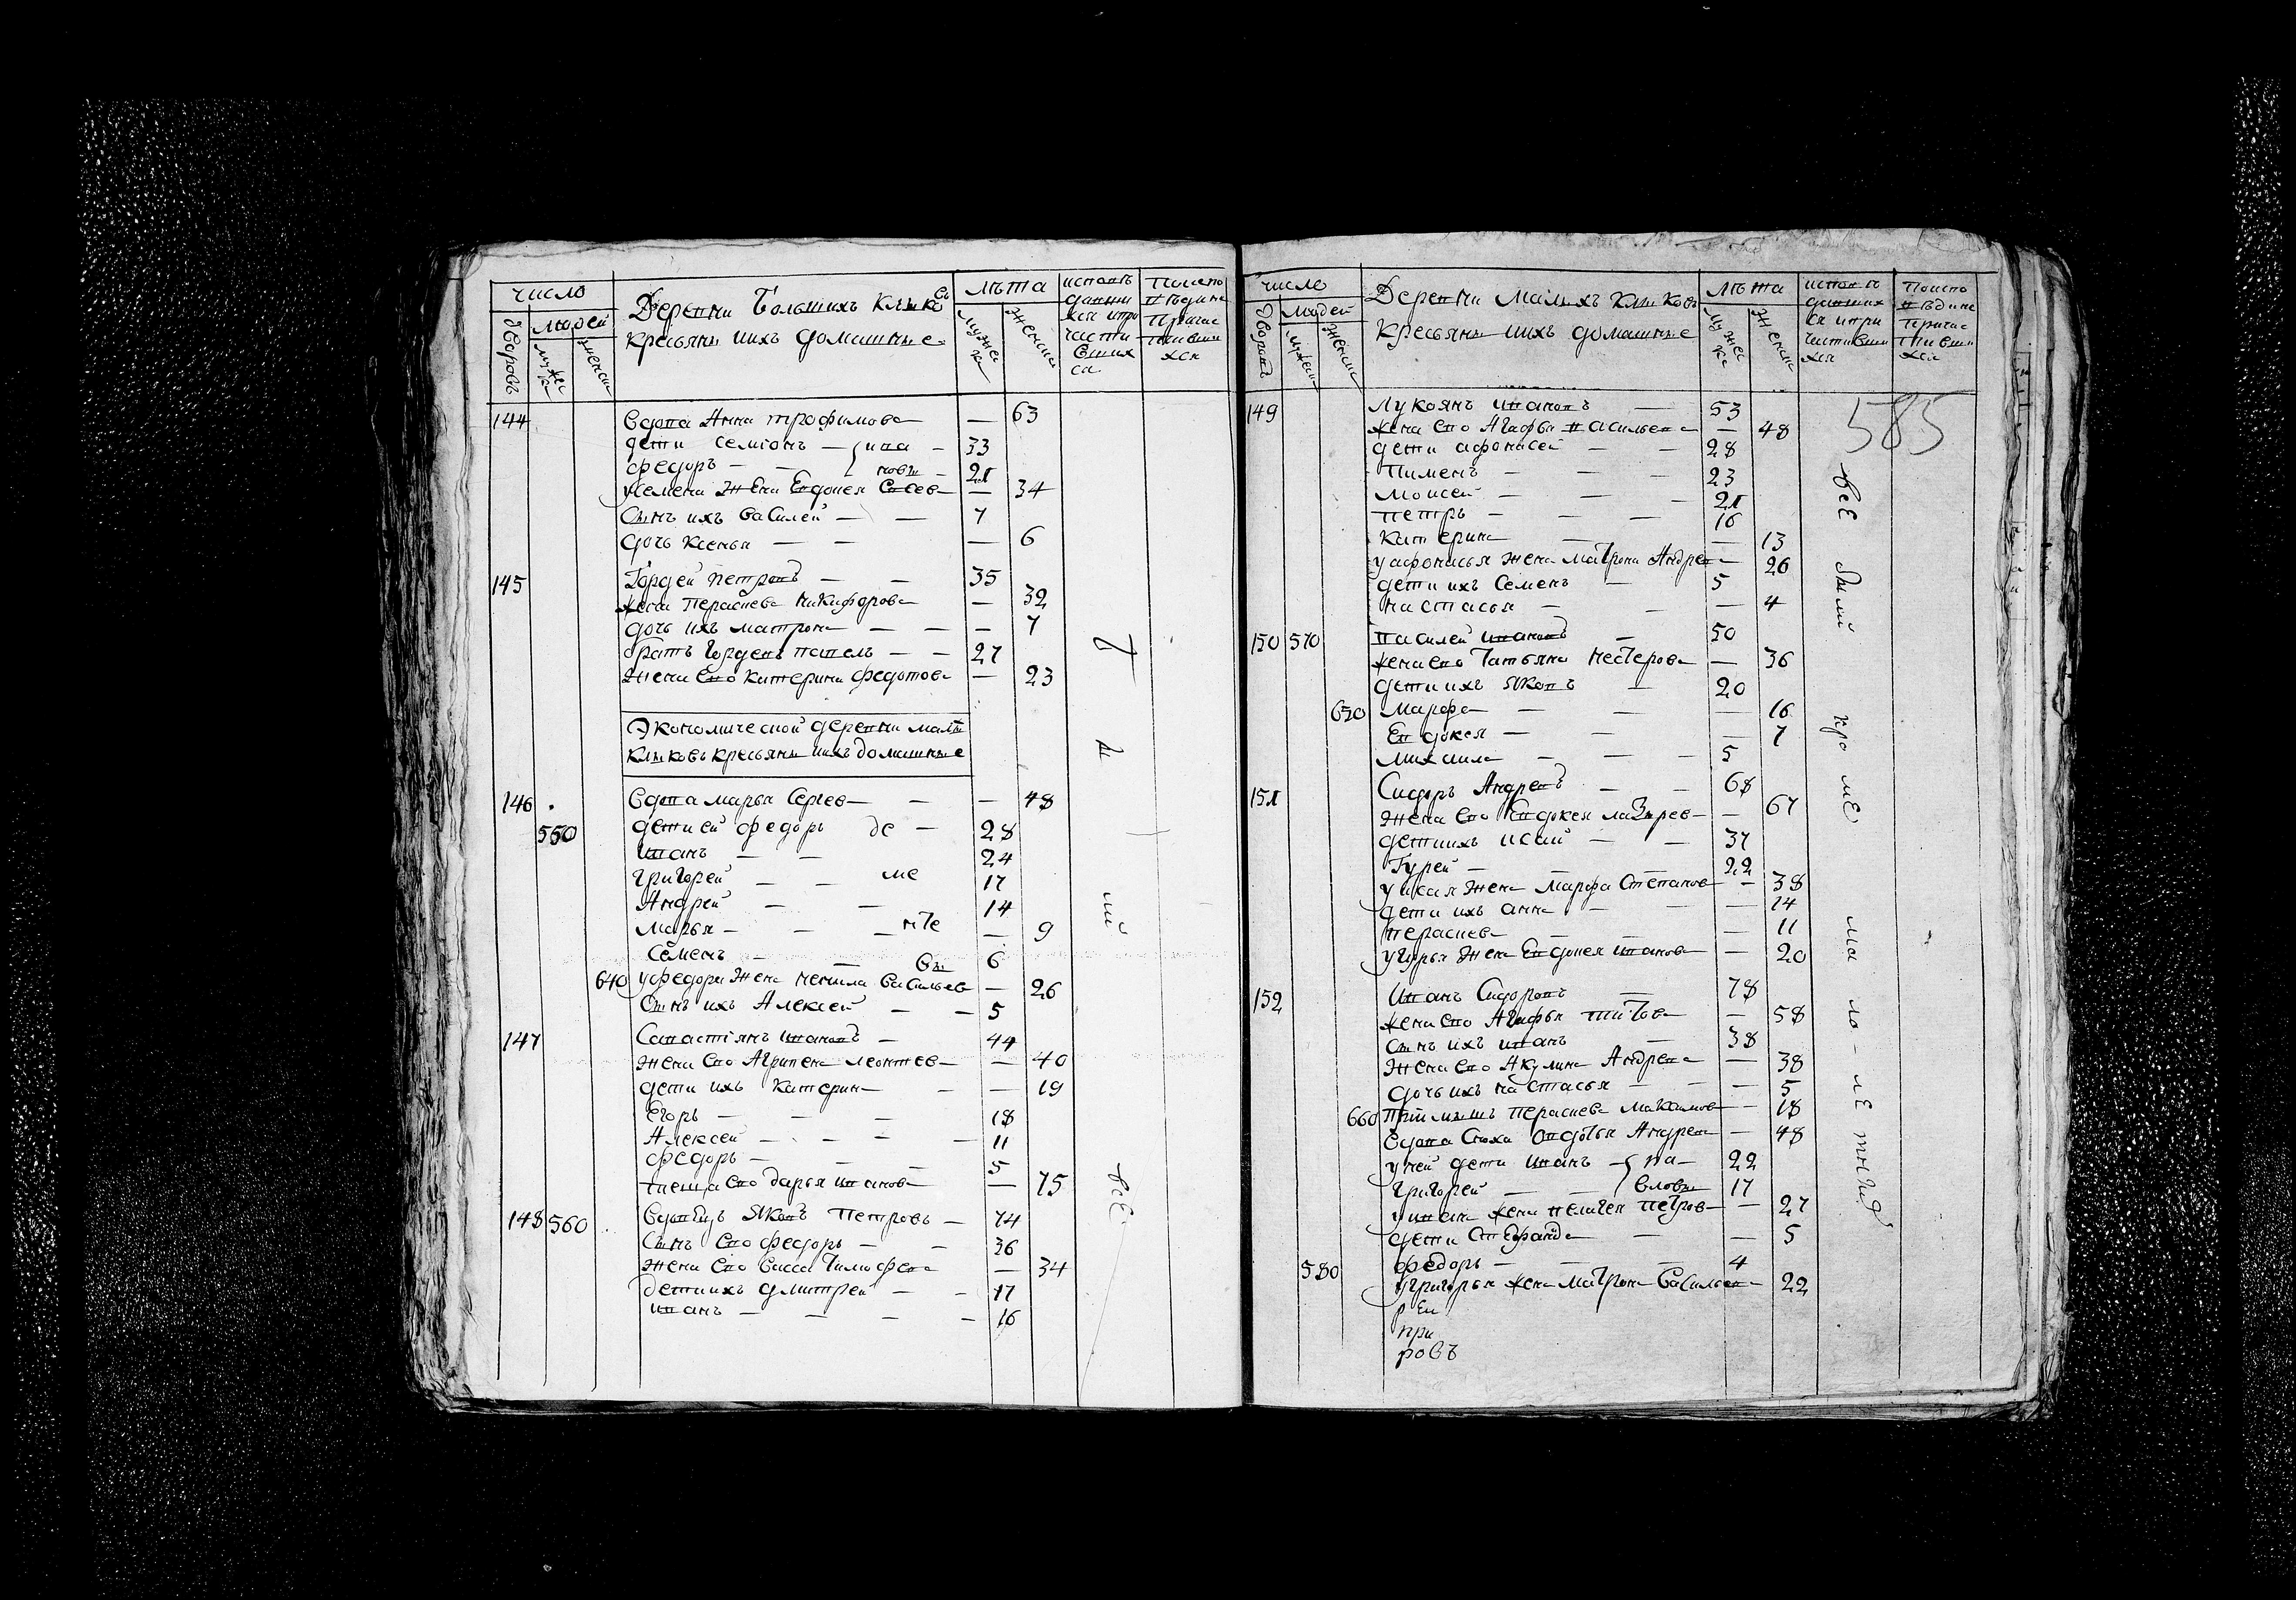 число
дворовъ людей
мужеска женска
Деревни Большихъ Клыковъ
кресьяны ихъ домашные
лѣта
мужеска женска
исповѣ
давши
хся и при
части
вших
ся
поиспо
вѣдине
причас
тивши
хся
144 вдова Анна трофимова — 63
дети семионъ — ива — 33
федоръ — новы — 21
уСемена жена Евдокея — 34
Сынъ ихъ василей — 7
дочь ксенья — 6
145 Гордей петровъ — 35
жена Парасковья никифорова — 32
дочь ихъ матрона — 7
братъ Гордеевъ павелъ — 27
жена ево катерина федотова — 23
Экономической деревни малы
клыковъ кресьяны ихъ домашные
146 вдова марья Сергев — 48
550 дети ей федоръ де — 28
иванъ — 24
григорей — ме 17
Андрей — 14
марья — 9
семенъ — вы 6
640 уфедора жена ненила васильев — 26
Сынъ ихъ Алексей — 5
147 Савастиянъ ивановъ — 44
жена ево Агрипена леонтев — 40
дети ихъ катерина — 19
егоръ — 18
Алексей — 11
федоръ — 5
теща ево дарья иванов — 75
148 560 вдовецъ Яковъ петровъ — 74
Сынъ ево федоръ — 36
жена ево васса тимофева — 34
дети ихъ дмитрей — 17
иванъ — 16
все
число
дворовъ людей
мужеск женска
Деревни малыхъ клыковъ
кресьяны ихъ домашные
лѣта
мужеска женска
исповѣ
давших
ся и при
частивши
хся
поиспо
вѣдине
причас
тивши
хся
585
149 лукоянъ ивановъ — 53
жена ево Агафья васильева — 48
дети афонасей — 28
пименъ — 23
моисей — 21
петръ — 16
катерина — 13
уафонасья жена матрона Андрев — 26
дети ихъ Семенъ — 5
настасья — 4
150 570 василей ивановъ — 50
жена ево татьяна нестерова — 36
дети ихъ Яковъ — 20
650 марфа — 16
Евдокея — 7
михаила — 5
151 Сидоръ Андревъ — 68
жена ево Евдокея лазарев — 67
дети ихъ исай — 37
Гурей — 22
уисая жена марфа Степанов — 38
дети ихъ анна — 14
парасковья — 11
угурья жена Евдокея иванов — 20
152 иванъ Сидоровъ — 78
жена ево Агафья титова — 58
Сынъ ихъ иванъ — 38
жена ево Акулина Андрева — 38
дочь ихъ настасья — 5
660 приимышъ парасковья максимов — 18
вдова сноха овдотья Андрев — 48
у ней дети иванъ — па — 22
григорей — вловы 17
уивана жена пелагея петров — 27
дети Стефанида — 5
580 федоръ — 4
угригорья жена матрона васильев — 22
реи
при
ровъ
все были кро ме ма ло – ле тныхъ